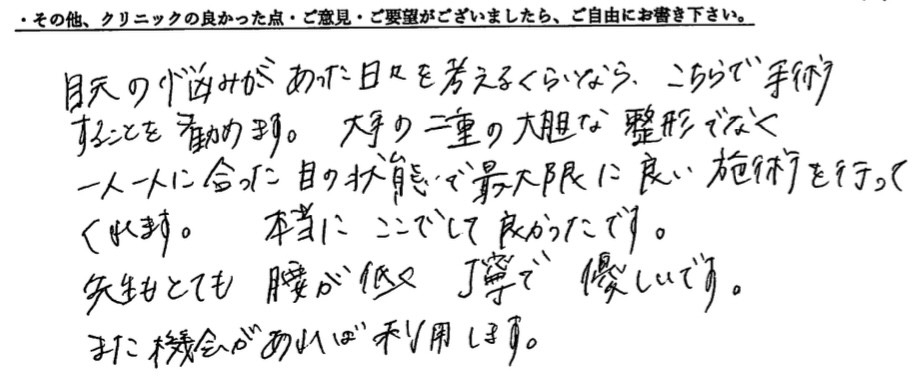 ・その他、クリニックの良かった点・ご意見・ご要望がございましたら、ご自由にお書き下さい。
目元の悩みがあった日々を考えるくらいなら、こちらで手術
することを勧めます。 大手の二重の大胆な整形でなく
一人一人に合った目の状態で最大限に良い施術を行って
くれます。 本当にここでして良かったです。
先生もとても腰が低く丁寧で優しいです。
また機会があれば利用します。